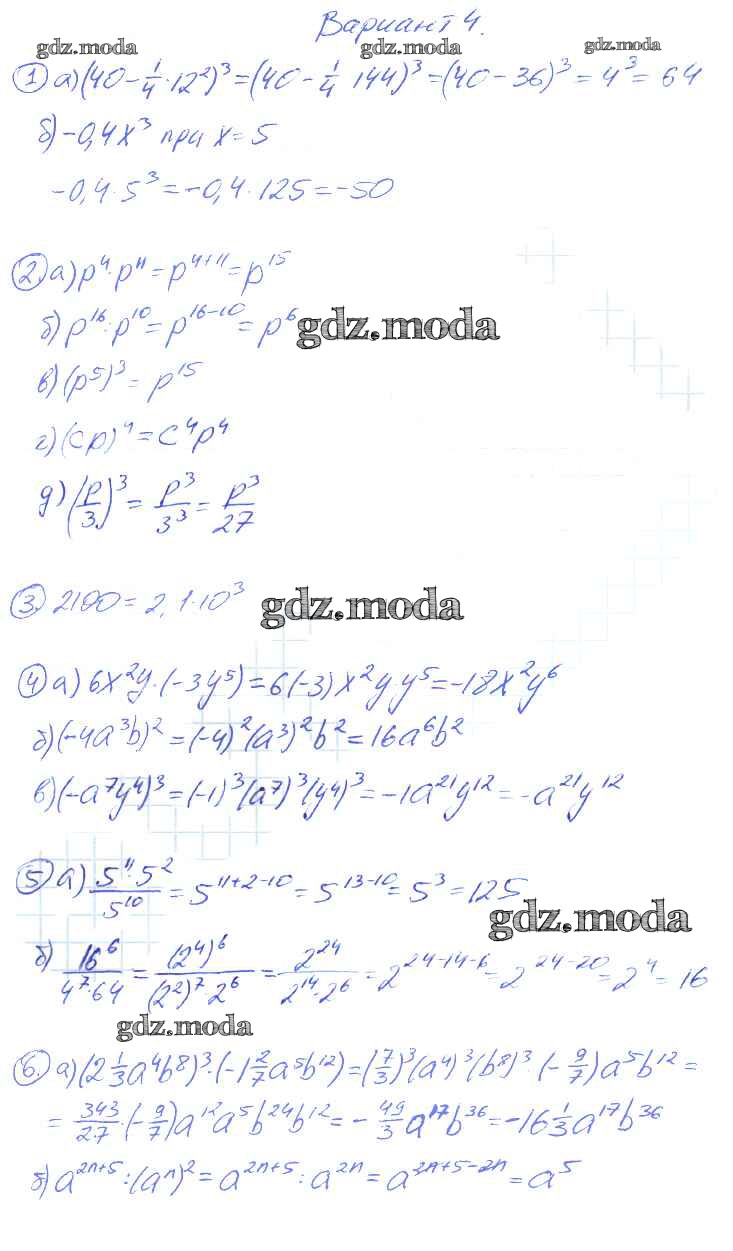 Вариант 4.
gdz.moda gdz.moda gdz.moda
① а) (40 - 1/4 · 12²)³ = (40 - 1/4 144)³ = (40 - 36)³ = 4³ = 64
б) -0,4x³ при x = 5
-0,4 · 5³ = -0,4 · 125 = -50
② а) p⁴ · p¹¹ = p⁴⁺¹¹ = p¹⁵
б) p¹⁶ : p¹⁰ = p¹⁶⁻¹⁰ = p⁶
gdz.moda
в) (p⁵)³ = p¹⁵
г) (cp)⁴ = c⁴p⁴
д) (p/3)³ = p³/3³ = p³/27
③ 2100 = 2,1 · 10³
gdz.moda
④ а) 6x²y · (-3y⁵) = 6(-3)x²y y⁵ = -18x²y⁶
б) (-4a³b)² = (-4)²(a³)²b² = 16a⁶b²
в) (-a⁷y⁴)³ = (-1)³(a⁷)³(y⁴)³ = -1a²¹y¹² = -a²¹y¹²
⑤ а) 5¹¹ · 5²/5¹⁰ = 5¹¹⁺²⁻¹⁰ = 5¹³⁻¹⁰ = 5³ = 125
gdz.moda
б) 16⁶/4⁷·64 = (2⁴)⁶/(2²)⁷·2⁶ = 2²⁴/2¹⁴·2⁶ = 2²⁴⁻¹⁴⁻⁶ = 2²⁴⁻²⁰ = 2⁴ = 16
gdz.moda
⑥. а) (2 1/3 a⁴b⁸)³ · (-1 2/7 a⁵b¹²) = (7/3)³(a⁴)³(b⁸)³ · (-9/7)a⁵b¹² =
= 343/27 · (-9/7)a¹²a⁵b²⁴b¹² = -49/3 a¹⁷b³⁶ = -16 1/3 a¹⁷b³⁶
б) a²ⁿ⁺⁵ : (aⁿ)² = a²ⁿ⁺⁵ : a²ⁿ = a²ⁿ⁺⁵⁻²ⁿ = a⁵